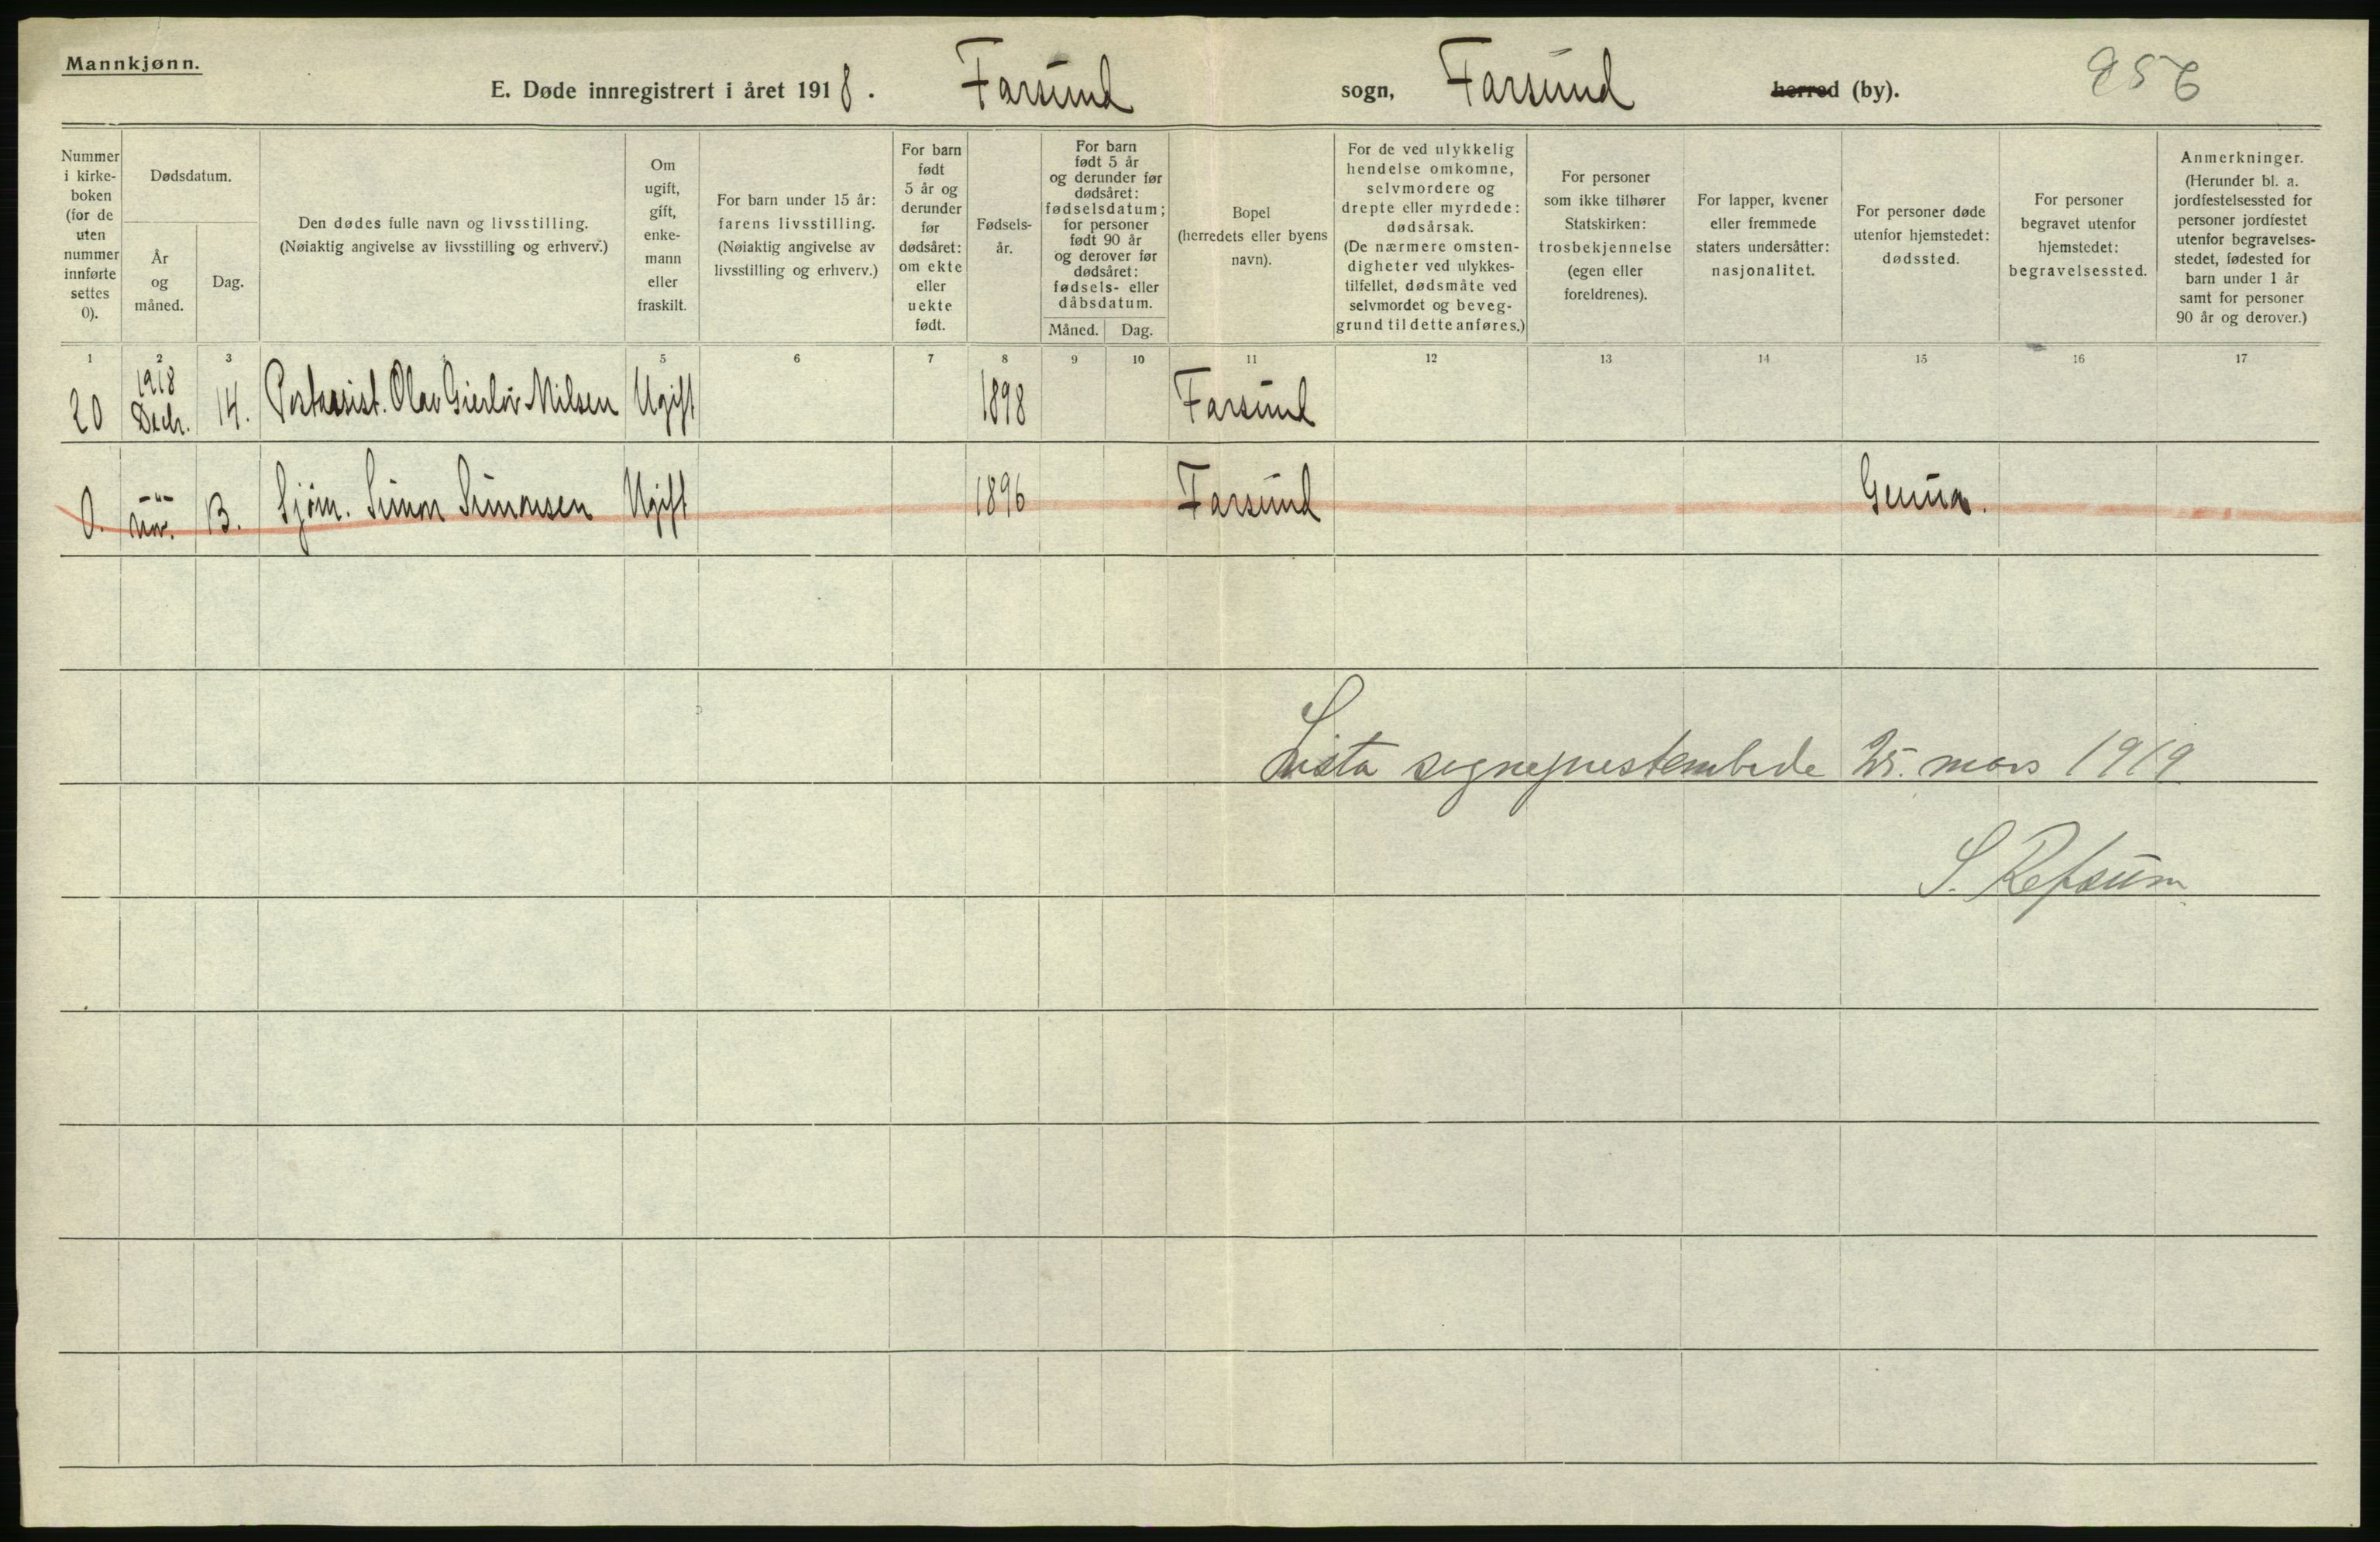 Mannkjønn.
E. Døde innregistrert i året 1918. Farsund sogn, Farsund herred (by). 956
Nummer
i kirke-
boken
(for de
uten
nummer
innførte
settes
0).
Dødsdatum.
År
og
måned.
Dag.
Den dødes fulle navn og livsstilling.
(Nøiaktig angivelse av livsstilling og erhverv.)
Om
ugift,
gift,
enke-
mann
eller
fraskilt.
For barn under 15 år:
farens livsstilling.
(Nøiaktig angivelse av
livsstilling og erhverv.)
For barn
født
5 år og
derunder
før
dødsåret:
om ekte
eller
uekte
født.
Fødsels-
år.
For barn
født 5 år
og derunder før
dødsåret:
fødselsdatum;
for personer
født 90 år
og derover før
dødsåret:
fødsels- eller
dåbsdatum.
Måned. Dag.
Bopel
(herredets eller byens
navn).
For de ved ulykkelig
hendelse omkomne,
selvmordere og
drepte eller myrdede:
dødsårsak.
(De nærmere omsten-
digheter ved ulykkes-
tilfellet, dødsmåte ved
selvmordet og beveg-
grund til dette anføres.)
For personer
som ikke tilhører
Statskirken:
trosbekjennelse
(egen eller
foreldrenes).
For lapper, kvener
eller fremmede
staters undersåtter:
nasjonalitet.
For personer døde
utenfor hjemstedet:
dødssted.
For personer
begravet utenfor
hjemstedet:
begravelsessted.
Anmerkninger.
(Herunder bl. a.
jordfestelsessted for
personer jordfestet
utenfor begravelses-
stedet, fødested for
barn under 1 år
samt for personer
90 år og derover.)
1 2 3 5 6 7 8 9 10 11 12 13 14 15 16 17
20 1918 Decbr. 14. Postassist. Olav Gierløv Nilsen Ugift 1898 Farsund
0. -"- nov. 13. Sjøm. Simon Simonsen Ugift 1896 Farsund Genua.
Lista sogneprestembede 25. mars 1919
S. Refsum